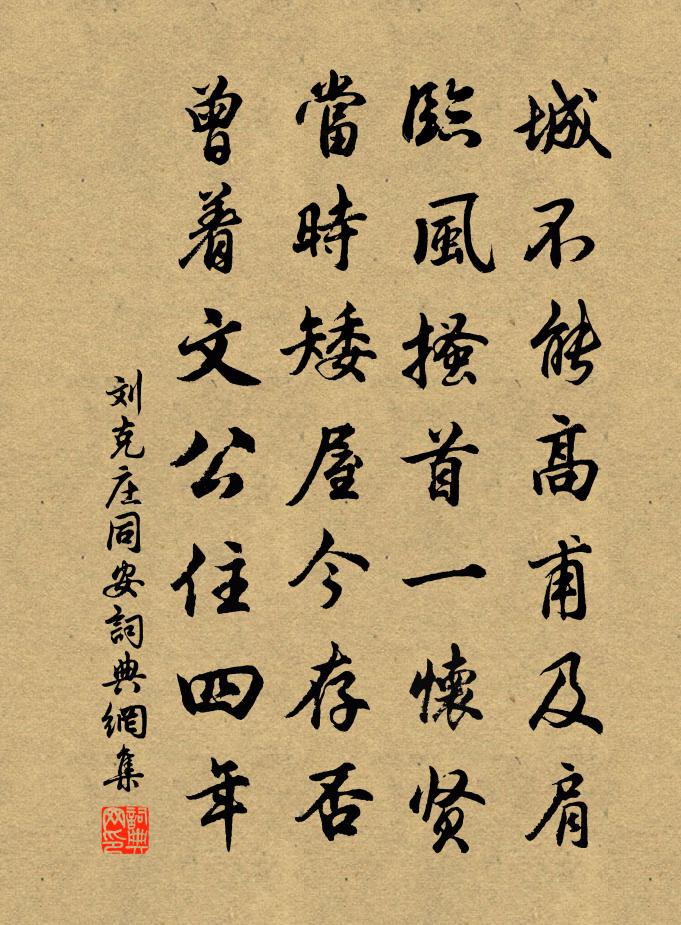 城不能高甫及肩
臨風搔首一懷贤
當時矮屋今存否
曾着文公住四年
刘克庄同安詞典網集
詞典网印